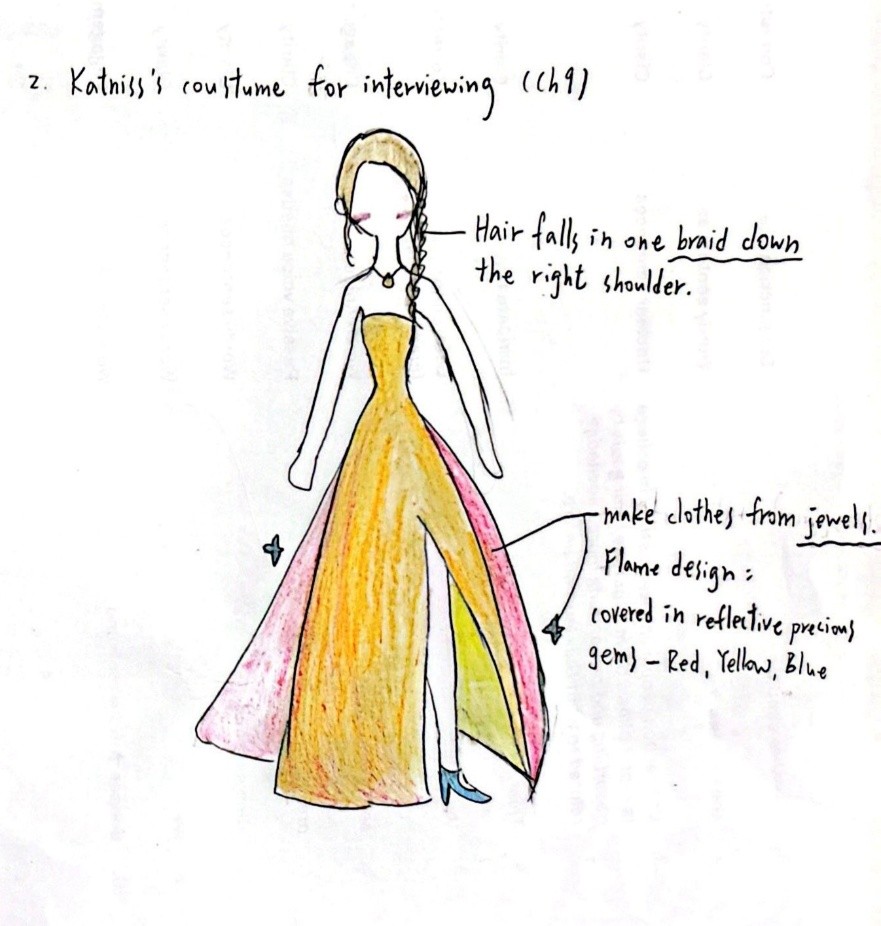 2. Katniss's coustume for interviewing (Ch9)
Hair falls in one braid down
the right shoulder.
make clothes from jewels.
Flame design :
covered in reflective precious
gems - Red, Yellow, Blue